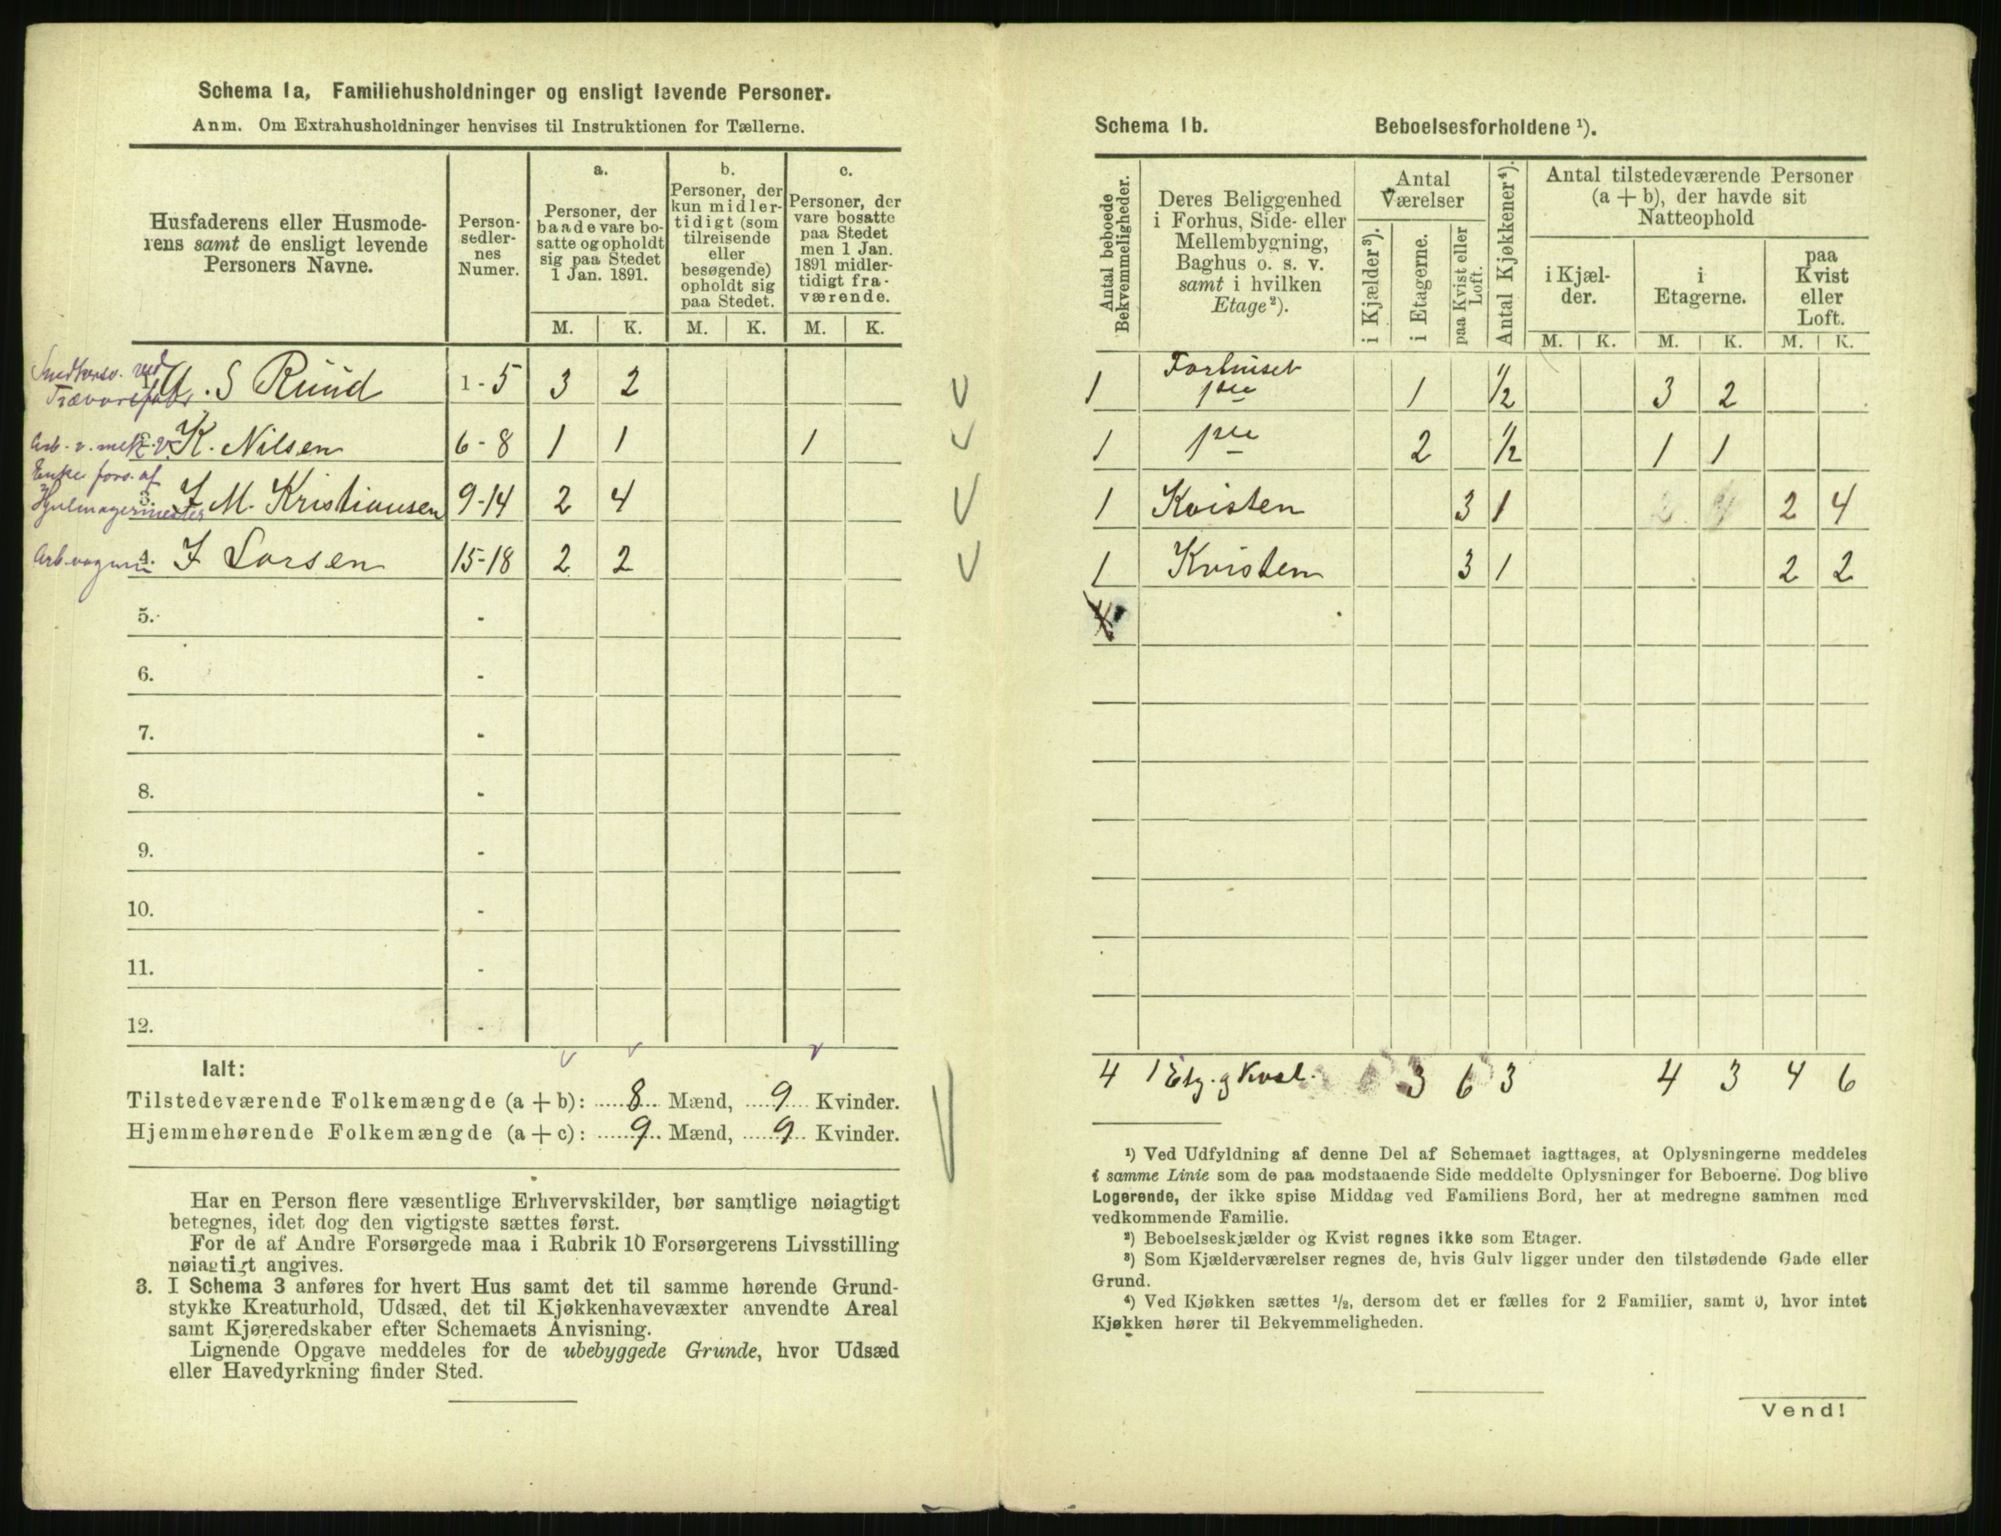 Schema 1a, Familiehusholdninger og ensligt levende Personer.
Anm. Om Extrahusholdninger henvises til Instruktionen for Tællerne.
Husfaderens eller Husmode-
rens samt de ensligt levende
Personers Navne.
Person-
sedler-
nes
Numer.
a.
Personer, der
baade vare bo-
satte og opholdt
sig paa Stedet
1 Jan. 1891.
b.
Personer, der
kun midler-
tidigt (som
tilreisende
eller
besøgende)
opholdt sig
paa Stedet.
c.
Personer, der
vare bosatte
paa Stedet
men 1 Jan.
1891 midler-
tidigt fra-
værende.
M. K. M. K. M. K.
ved
Trævarefabr. S Ruud 1-5 3 2
Arb. v. mek. V. K. Nilsen 6-8 1 1 1
Enke fors. af
Hjulmagermester 3. J M. Kristiansen 9-14 2 4
4. J Larsen 15-18 2 2
5. -
6. -
7. -
8. -
9. -
10. -
11. -
12. -
Ialt:
Tilstedeværende Folkemængde (a + b): 8 Mænd, 9 Kvinder.
Hjemmehørende Folkemængde (a + c): 9 Mænd, 9 Kvinder.
Har en Person flere væsentlige Erhvervskilder, bør samtlige nøiagtigt
betegnes, idet dog den vigtigste sættes først.
For de af Andre Forsørgede maa i Rubrik 10 Forsørgerens Livsstilling
nøiagtigt angives.
3. I Schema 3 anføres for hvert Hus samt det til samme hørende Grund-
stykke Kreaturhold, Udsæd, det til Kjøkkenhavevæxter anvendte Areal
samt Kjøreredskaber efter Schemaets Anvisning.
Lignende Opgave meddeles for de ubebyggede Grunde, hvor Udsæd
eller Havedyrkning finder Sted.
Schema 1b. Beboelsesforholdene ¹).
Antal beboede
Bekvemmeligheder.
Deres Beliggenhed
i Forhus, Side- eller
Mellembygning,
Baghus o. s. v.
samt i hvilken
Etage²).
Antal
Værelser
i Kjælder³).
i Etagerne.
paa Kvist eller
Loft.
Antal Kjøkkener⁴).
Antal tilstedeværende Personer
(a + b), der havde sit
Natteophold
i Kjæl-
der.
i
Etagerne.
paa
Kvist
eller
Loft.
M. K. M. K. M. K.
Forhuset
1 1ste 1 ½ 3 2
1 1ste 2 ½ 1 1
1 Kvisten 3 1 2 4
1 Kvisten 3 1 2 2
4 1 Etg. og Kvist. 3 6 3 4 3 4 6
¹) Ved Udfyldning af denne Del af Schemaet iagttages, at Oplysningerne meddeles
i samme Linie som de paa modstaaende Side meddelte Oplysninger for Beboerne. Dog blive
Logerende, der ikke spise Middag ved Familiens Bord, her at medregne sammen med
vedkommende Familie.
²) Beboelseskjælder og Kvist regnes ikke som Etager.
³) Som Kjælderværelser regnes de, hvis Gulv ligger under den tilstødende Gade eller
Grund.
⁴) Ved Kjøkken sættes ½, dersom det er fælles for 2 Familier, samt 0, hvor intet
Kjøkken hører til Bekvemmeligheden.
Vend!